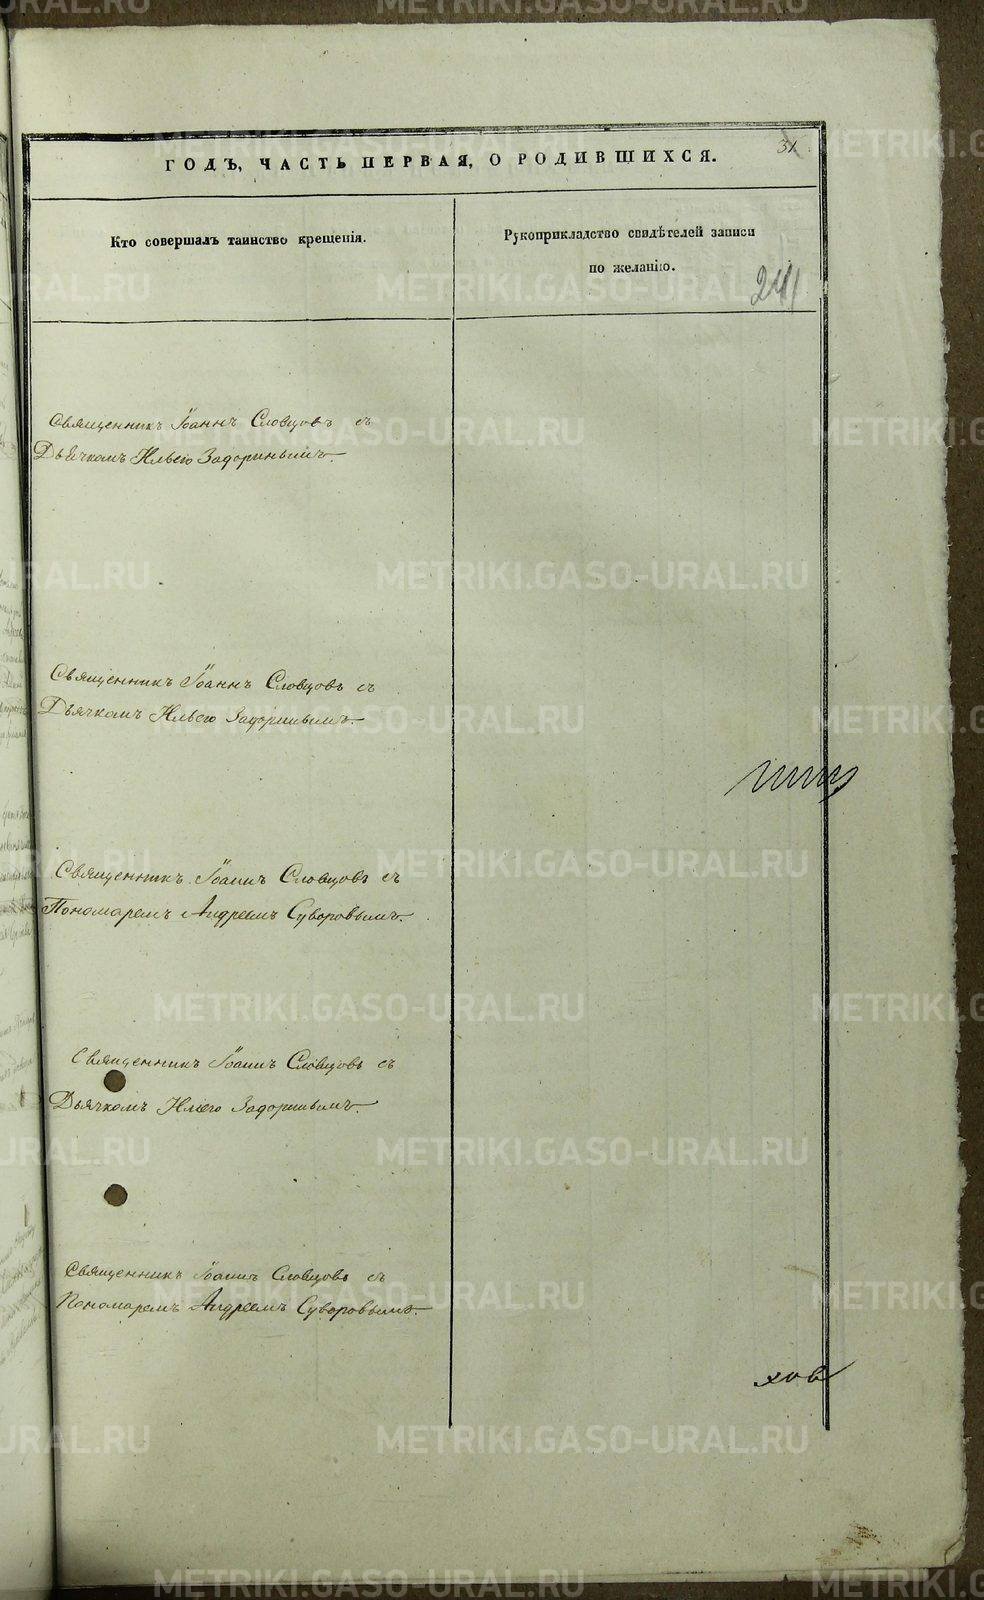 31
ГОДЪ, ЧАСТЬ ПЕРВАЯ, О РОДИВШИХСЯ.
Кто совершалъ таинство крещенія.
Рукоприкладство свидѣтелей записи
по желанію.
241
Священникъ Іоаннъ Словцовъ съ
Дьячкомъ Ильею Задоринымъ.
Священникъ Іоаннъ Словцовъ съ
Дьячкомъ Ильею Задоринымъ.
Священникъ Іоаннъ Словцовъ съ
Пономаремъ Андреемъ Суворовымъ.
Священникъ Іоаннъ Словцовъ съ
Дьячкомъ Ильею Задоринымъ.
Священникъ Іоаннъ Словцовъ съ
Пономаремъ Андреемъ Суворовымъ.
ховъ
METRIKI.GASO-URAL.RU